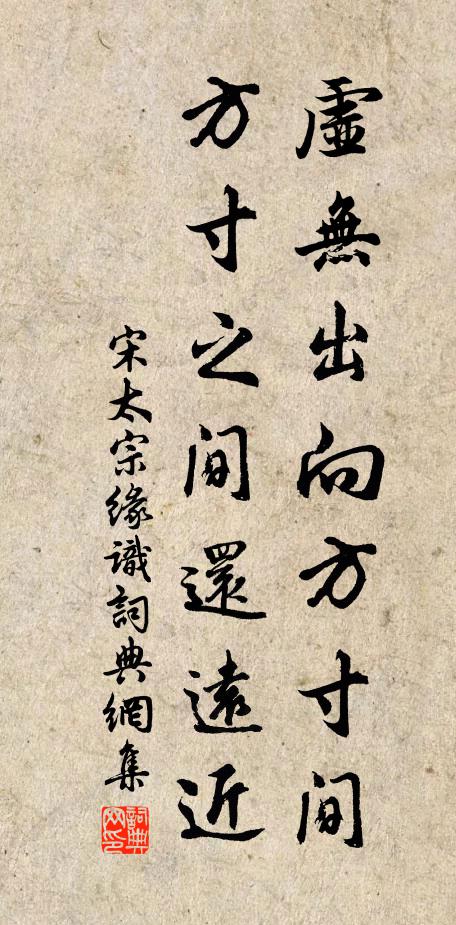 虛無出向方寸間
方寸之間還遠近
宋太宗緣識詞典網集
詞典
網印